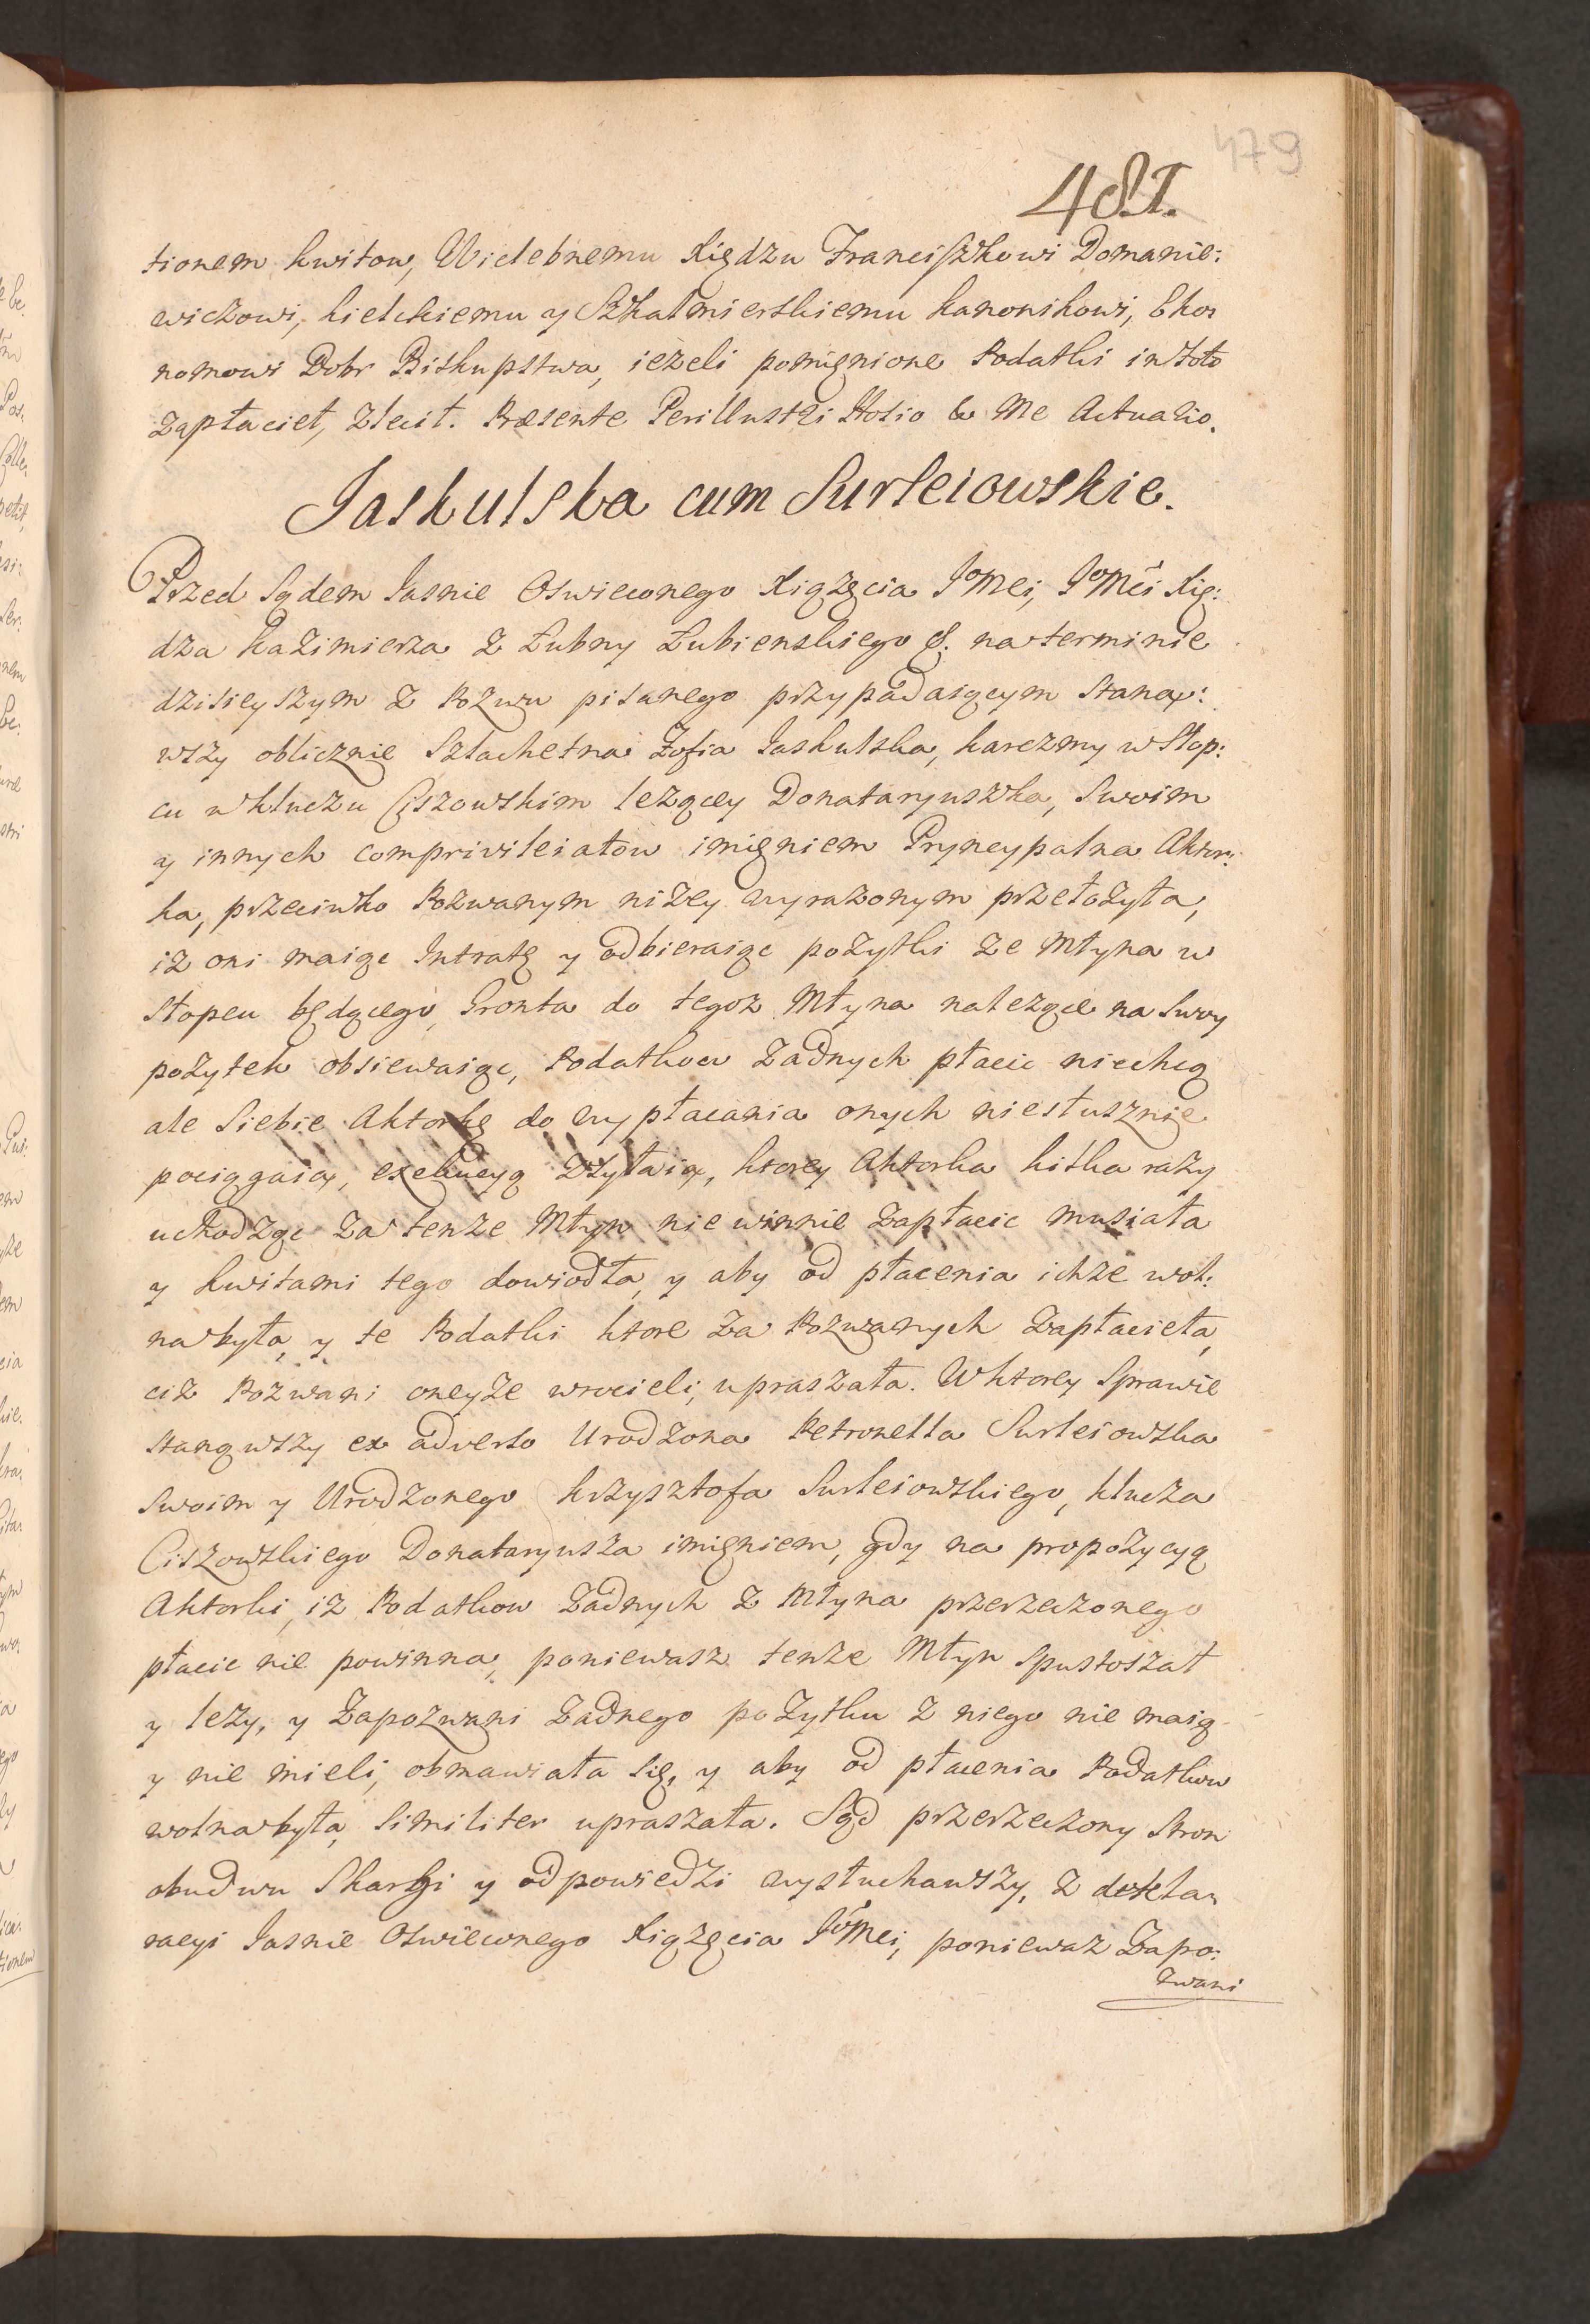 479
481.
tionem kwitow, Wielebnemu Xiędzu Franciszkowi Domanie:
wiczowi, kielckiemu y Szkalmierskiemu kanonikowi, Eko:
nomowi Dobr Biskupstwa, ieżeli pomięnione Podatki in toto
zapłacieł, zlecił. Præsente Perillustri Hosio & Me Actuario.
Jaskulska cum Surleiowskie.
Przed Sądem Iasnie Oswieconego Xiążęcia JoMci, JoMci Xię:
dza Kazimierza z Łubny Łubienskiego &. na terminie
dzisieyszym z Pozwu pisanego przypadaiącym staną:
wszy oblicznie Szlachetna Zofia Jaskulska, karczmy w Słop:
cu w kluczu Ciszowskim leżącey Donataryuszka, Swoim
y innych compriwileiatow imięniem Pryncypalna Aktor:
ka, przeciwko Pozwanym niżey wyrazonym przełożyła,
iż oni maiąc Intratę y odbieraiąc pożytki ze Młyna w
Słopcu będącego, Gronta do tegoz Młyna należące na Swoy
pożytek obsiewaiąc, Podatkow żadnych płacic niechcą
ale Siebie Aktorkę do wypłacania onych niesłusznie
pociągaią, exekucyą zsyłaią, ktorey Aktorka kilka razy
uchodząc za tenże Młyn niewinnie zapłacic musiała
y kwitami tego dowiodła, y aby od płacenia ichże wol:
na była, y te Podatki ktore za Pozwanych zapłacieła,
ciż Pozwani oneyże wrocieli, upraszała. W ktorey Sprawie
stanąwszy ex adverso Urodzona Petronella Surleiowska
Swoim y Urodzonego Krzysztofa Surleiowskiego, klucza
Ciszowskiego Donataryusza imięniem, gdy na propozycyą
Aktorki, iż Podatkow żadnych z Młyna przerzeczonego
płacic nie powinna, poniewasz tenże Młyn spustoszał
y leży, y Zapozwani żadnego pożytku z niego nie maią
y nie mieli, obmawiała się, y aby od płacenia Podatkow
wolna była, similiter upraszała. Sąd przerzeczony Stron
obudwu Skargi y odpowiedzi wysłuchawszy, z dekla:
racyi Iasnie Oswieconego Xiążęcia JoMci, poniewaz Zapo:
zwani